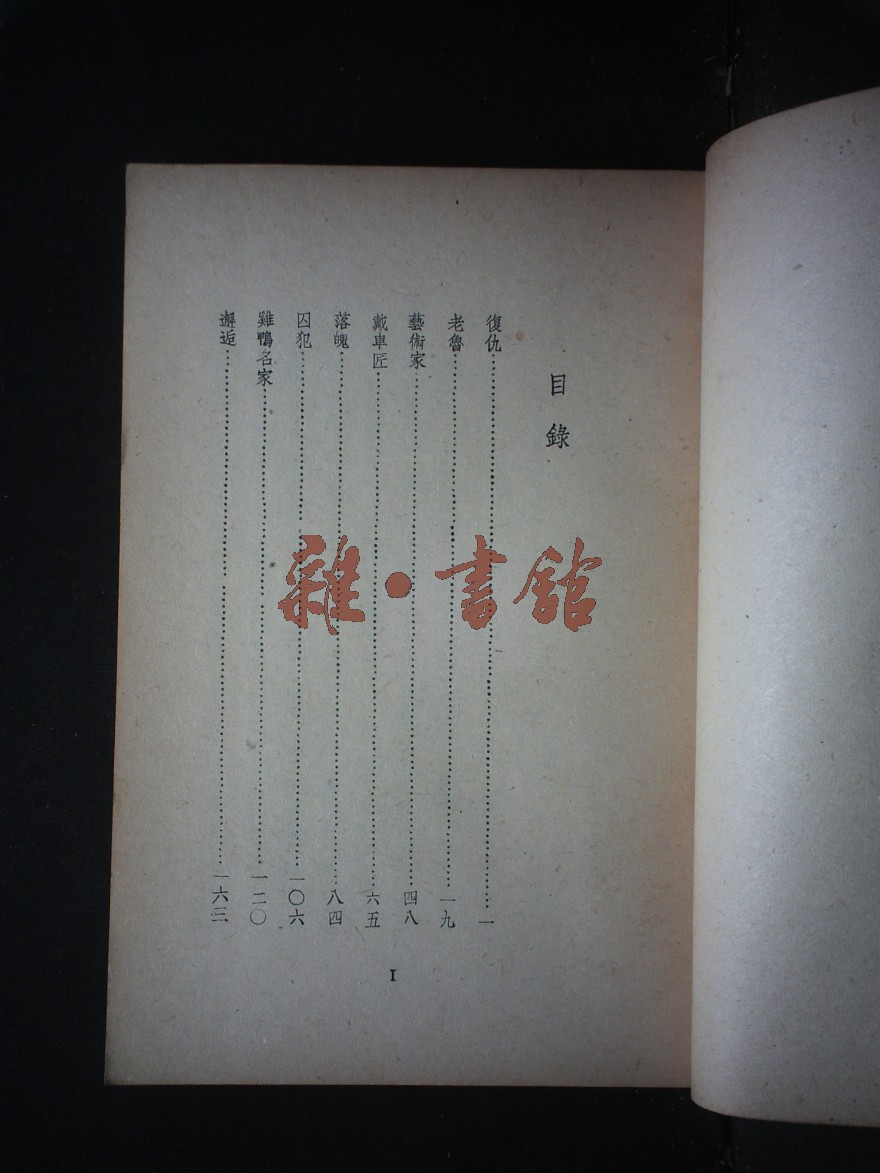 目錄
復仇……一
老魯……一九
藝術家……四八
戴車匠……六五
落魄……八四
囚犯……一〇六
雞鴨名家……一二〇
邂逅……一六三
I
雜·書館